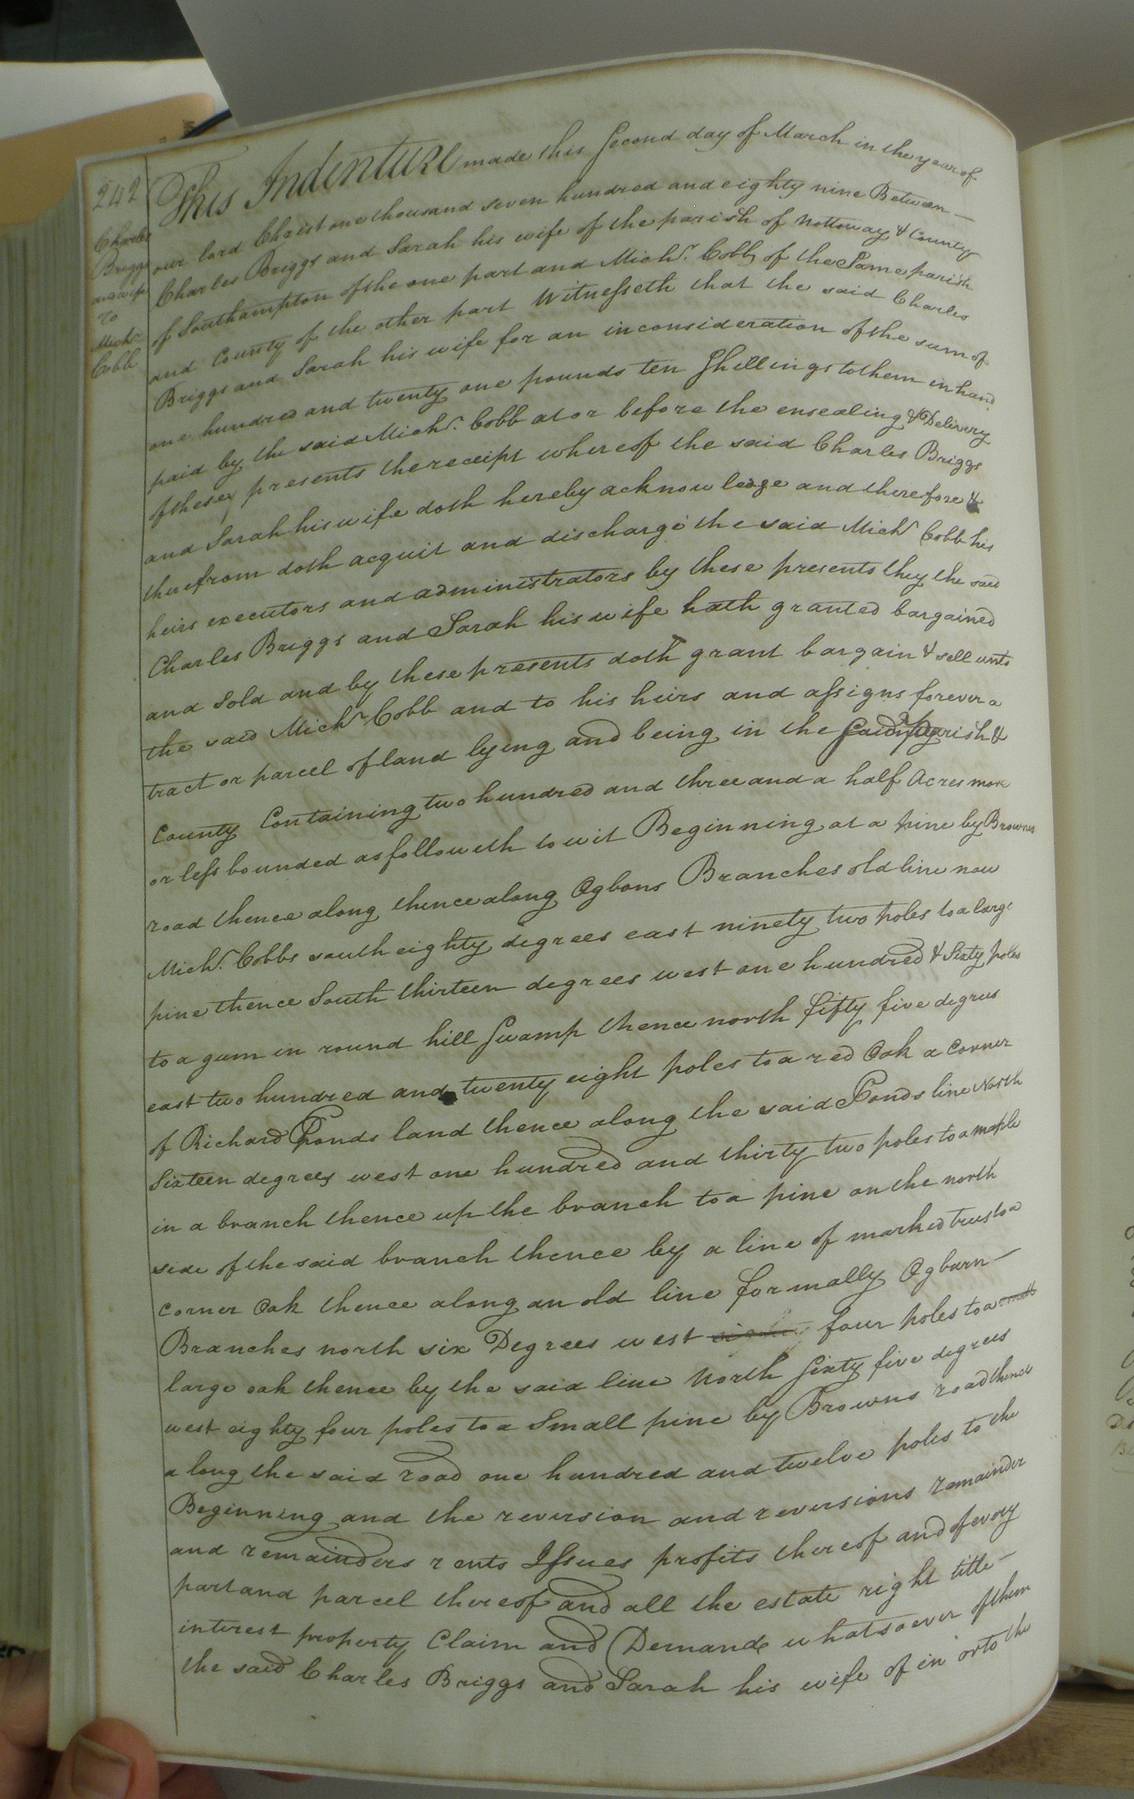 242
Charles
Briggs
and wife
To
Michl.
Cobb
This Indenture made this Second day of March in the year of
our lord Christ one thousand seven hundred and eighty nine Between
Charles Briggs and Sarah his wife of the parish of Nottoway & County
of Southampton of the one part and Michl. Cobb of the Same parish
and County of the other part Witnesseth that the said Charles
Briggs and Sarah his wife for an inconsideration of the sum of
one hundred and twenty one pounds ten Shillings to them in hand
paid by the said Michl. Cobb at or before the ensealing & Delivery
of these presents the receipt whereof the said Charles Briggs
and Sarah his wife doth hereby acknowledge and therefore &
therefrom doth acquit and discharge the said Michl Cobb his
heirs executors and administrators by these presents they the said
Charles Briggs and Sarah his wife hath granted bargained
and Sold and by these presents doth grant bargain & sell unto
the said Michl. Cobb and to his heirs and assigns forever a
tract or parcel of land lying and being in the said parish &
County Containing two hundred and three and a half Acres more
or less bounded as followeth to wit Beginning at a pine by Browns
road thence along thence along Ogbons Branches old line now
Michl. Cobbs south eighty degrees east ninety two poles to a large
pine thence South thirteen degrees west one hundred & Sixty poles
to a gum in round hill Swamp thence north fifty five degrees
east two hundred and twenty eight poles to a red Oak a Corner
of Richard Ponds land thence along the said Ponds line North
Sixteen degrees west one hundred and thirty two poles to a maple
in a branch thence up the branch to a pine on the north
side of the said branch thence by a line of marked trees to a
corner Oak thence along an old line formally Ogburn
Branches north six Degrees west four poles to a
large oak thence by the said line North Sixty five degrees
west eighty four poles to a Small pine by Browns road thence
along the said road one hundred and twelve poles to the
Beginning and the reversion and reversions remainder
and remainders rents Issues profits thereof and of every
part and parcel thereof and all the estate right title
interest property Claim and Demande whatsoever of them
the said Charles Briggs and Sarah his wife of in or to the